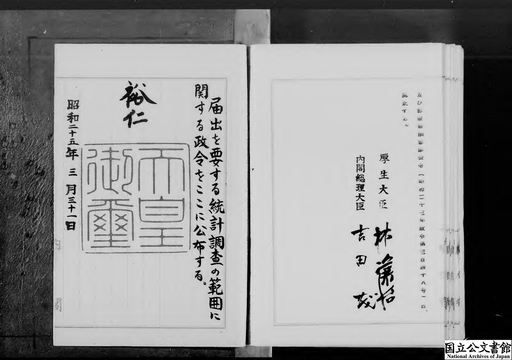 厚生大臣 林譲治
内閣総理大臣 吉田茂
届出を要する統計調査の範囲に
関する政令をここに公布する。
裕仁
天皇
御璽
昭和二十五年三月三十一日
国立公文書館
National Archives of Japan